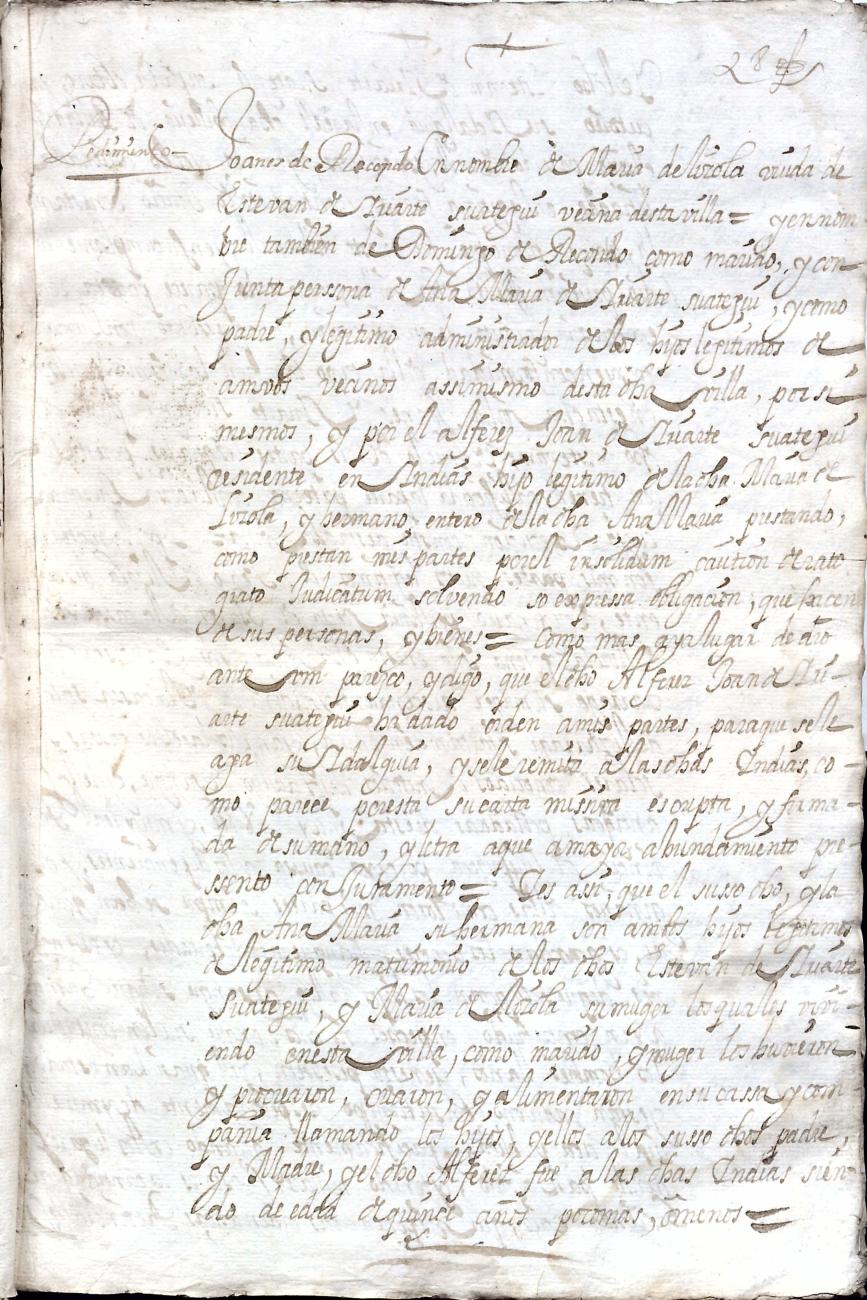 28 fs
Pedimento
Joanes de Recondo En nombre de Maria de Loyola viuda de
Estevan de Yriarte Suategui vecina desta villa = y en nom
bre tambien de Domingo de Recondo como marido, y con
Junta perssona de Ana Maria de Yriarte suategui, y como
padre, y legitimo administrador de los hijos legitimos de
amvos vecinos assimismo desta dha villa, por si
mesmos, y por el alferez Joan de Yriarte suategui
residente en Yndias hijo legitimo de la dha Maria de
Loyola, y hermano entero de la dha Ana Maria prestando,
como prestan mis partes por el insolidum caution de rato
grato Judicatum solvendo so expressa obligacion, que hacen
de sus personas, y bienes = Como mas aya lugar de dro
ante Vm parezco, y digo, que el dho Alferez Joan de Yri-
arte suategui ha dado orden a mis partes, para que se le
aga su Ydalguia, y se le remita a las dhas Yndias, co-
mo parece por esta su carta missiva escripta, y firma-
da de su mano, y letra a que a mayor abundamiento pre-
ssento con Juramento = Y es assi, que el susso dho, y la
dha Ana Maria su hermana son ambos hijos legitimos
de legitimo matrimonio de los dhos Estevan de Yriarte
Suategui, y Maria de Loyola su muger los quales vivi-
endo en esta villa, como marido, y muger los huvieron
y procrearon, criaron, y alimentaron en su cassa y com
pañia llamando los hijos, y ellos a los susso dhos padre,
y Madre, y el dho Alferez fue a las dhas Yndias sien-
do de edad de quince años poco mas, o menos =